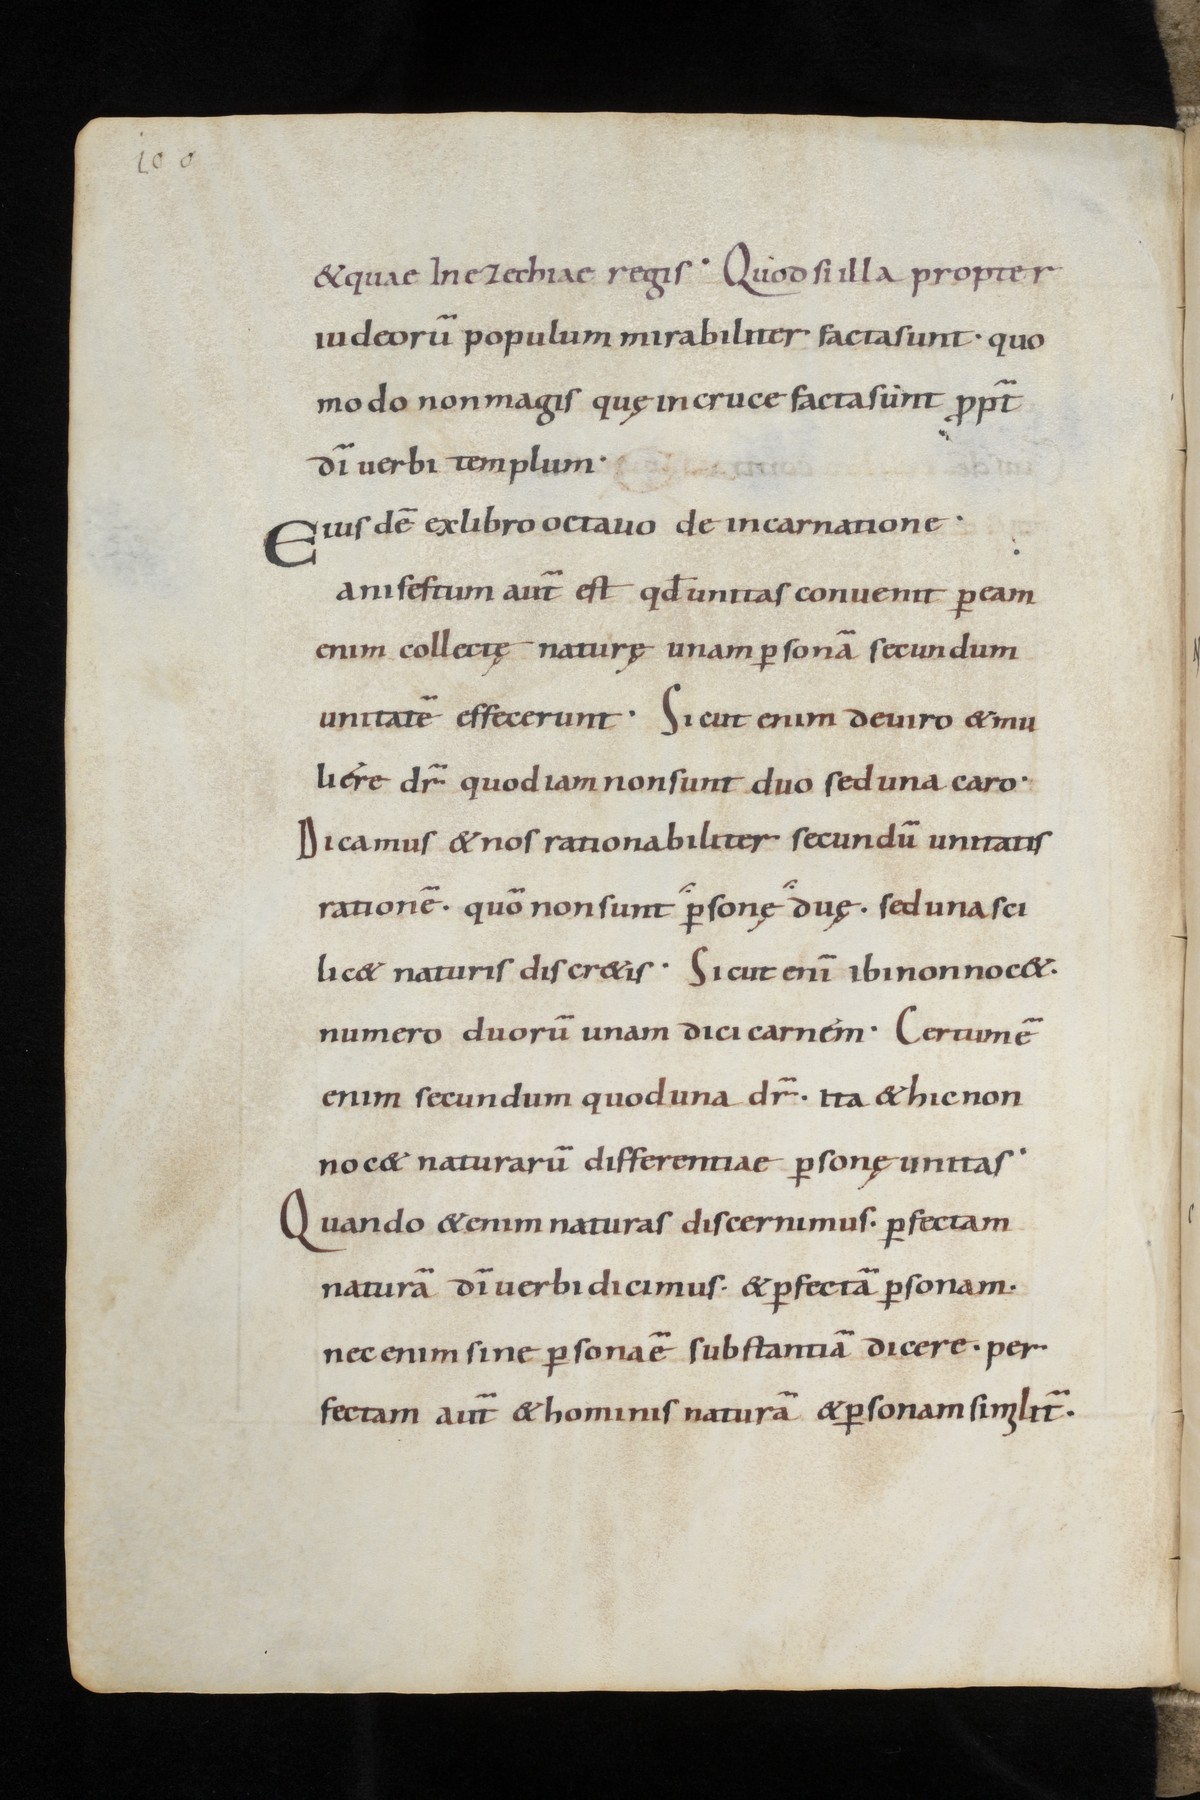 100
&quae In ezechiae regis · Quod si illa propter
iudeorū populum mirabiliter facta sunt · quo
modo non magis quę in cruce facta sunt ꝓpt̄
dī uerbi templum ·
Eiusdē ex libro octauo de incarnatione ·
anifestum aut̄ est qđ unitas conuenit ꝑ eam
enim collectę naturę unam ꝑsonā secundum
unitatē effecerunt · Sicut enim de uiro & mu
liere dr̄ quod iam non sunt duo sed una caro ·
Dicamus & nos rationabiliter secundū unitatis
rationē · quō non sunt ꝑsonę duę · sed una sci
lic& naturis discr&is · Sicut enī ibi non noc& ·
numero duorū unam dici carnem · Certum ē
enim secundum quod una dr̄ · ita & hic non
noc& naturarū differentiae ꝑsonę unitas ·
Quando &enim naturas discernimus · ꝑfectam
naturā dī uerbi dicimus · & ꝑfectā ꝑsonam ·
nec enim sine ꝑsona ē substantiā dicere · per
fectam aut̄ & hominis naturā & ꝑsonam simlit̄ ·